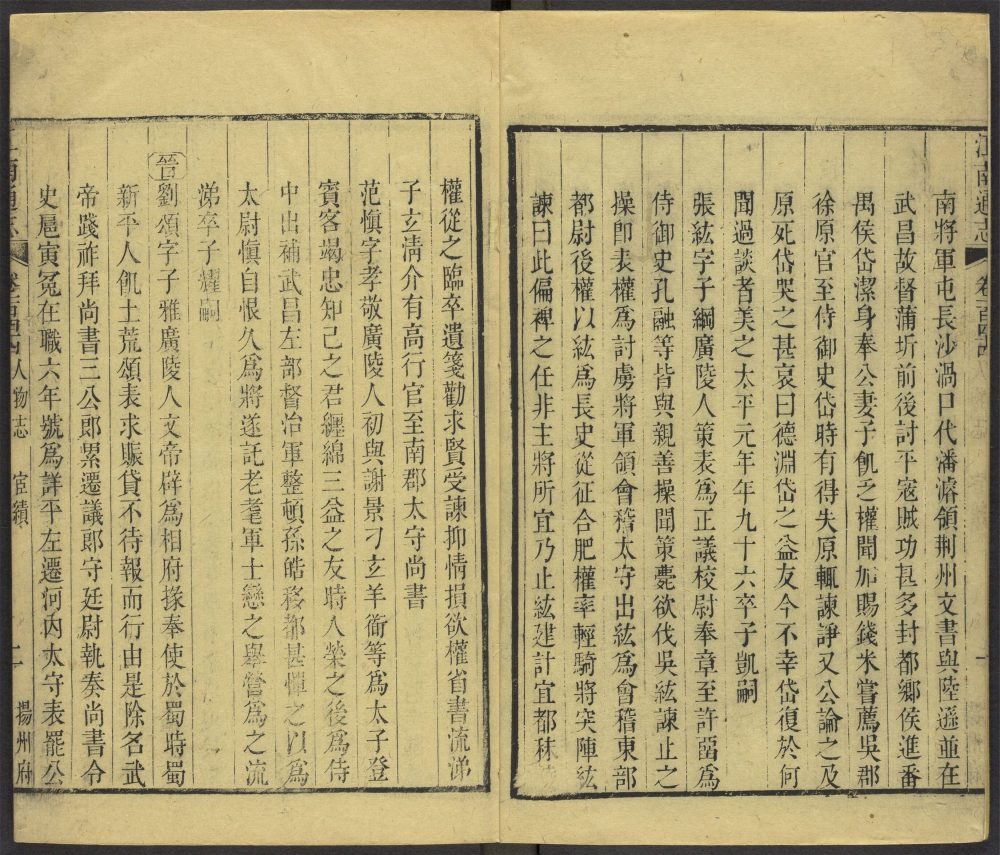 江南通志 卷一百四十四 一
南將軍屯長沙漚口代潘濬領荆州文書與陸遜並在
武昌故督蒲圻前後討平寇賊功甚多封都鄉侯進番
禺侯岱潔身奉公妻子飢乏權聞加賜錢米嘗薦吳郡
徐原官至侍御史岱時有得失原輒諫諍又公論之及
原死岱哭之甚哀曰德淵岱之益友今不幸岱復於何
聞過談者美之太平元年年九十六卒子凱嗣
張紘字子綱廣陵人策表爲正議校尉奉章至許畱爲
侍御史孔融等皆與親善操聞策薨欲伐吳紘諫止之
操即表權爲討虜將軍領會稽太守出紘爲會稽東部
都尉後權以紘爲長史從征合肥權率輕騎將突陣紘
諫曰此偏裨之任非主將所宜乃止紘建計宜都秣
權從之臨卒遺箋勸求賢受諫抑情損欲權省書流涕
子玄淸介有高行官至南郡太守尚書
范愼字孝敬廣陵人初與謝景刁玄羊衜等爲太子登
賓客竭忠知己之君纒綿三益之友時人榮之後爲侍
中出補武昌左部督治軍整頓孫皓移都甚憚之以爲
太尉愼自恨久爲將遂託老耄軍士戀之舉營爲之流
涕卒子耀嗣
晉劉頌字子雅廣陵人文帝辟爲相府掾奉使於蜀時蜀
新平人飢土荒頌表求賑貸不待報而行由是除名武
帝踐祚拜尚書三公郎累遷議郎守廷尉執奏尚書令
史扈寅寃在職六年號爲詳平左遷河內太守表罷公
江南通志 卷一百四十四 人物志 宦績 二 揚州府